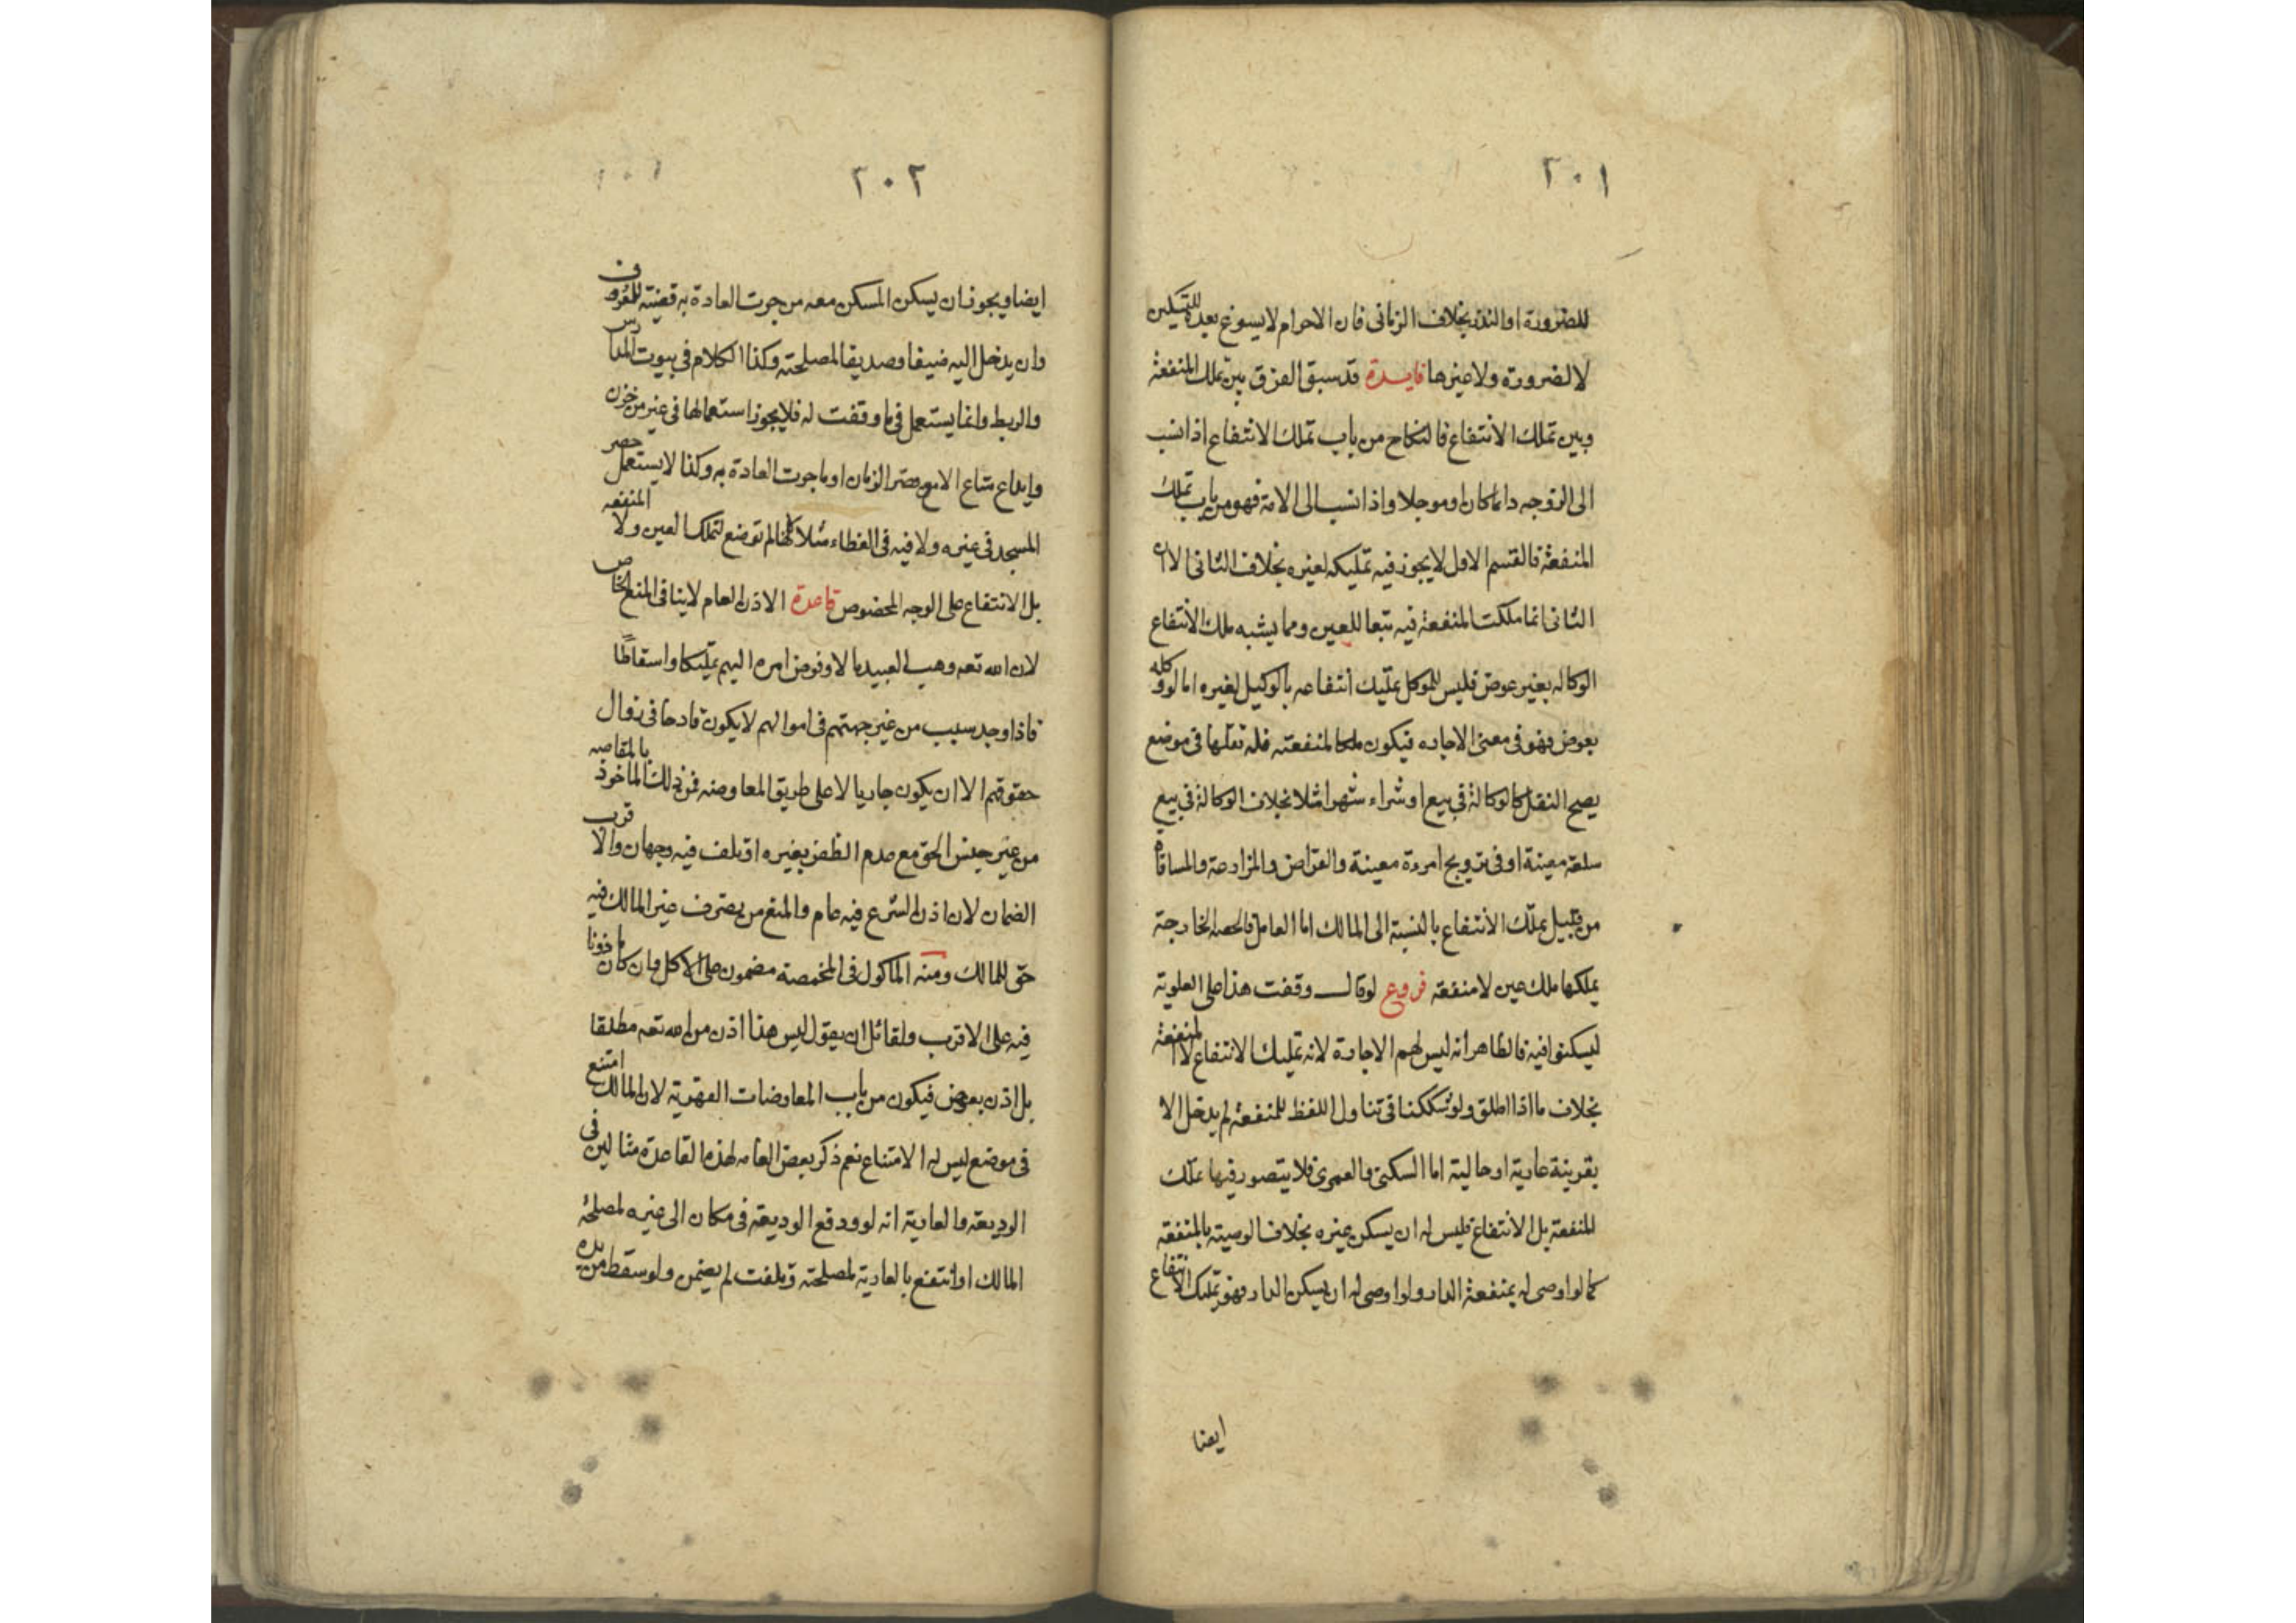 ٢٠١
للضرورة او النذر بخلاف الزمانى فان الاحرام لا يسوغ بعده للتمكين
لا لضرورة ولا غيرها فايدة قد سبق الفرق بين تملك المنفعة
وبين تملك الانتفاع فالنكاح من باب تملك الانتفاع اذا نسب
الى الزوجه دائما كان او موجلا واذا نسب الى الامة فهو من باب تملك
المنفعة فالقسم الاول لا يجوز فيه تمليكه لغيره بخلاف الثانى لان
الثانى انما ملكت المنفعة فيه تبعا للعين ومما يشبه ملك الانتفاع
الوكاله بغير عوض فليس للموكل تمليك انتفاعه بالوكيل لغيره اما لو وكله
بعوض فهو فى معنى الاجاره فيكون ملكا لمنفعته فله نقلها فى موضع
يصح النقل كالوكالة فى بيع او شراء شهرا مثلا بخلاف الوكالة فى بيع
سلعة معينة او فى تزويج امرءة معينة والقراض والمزارعة والمساقاة
من قبيل تملك الانتفاع بالنسبة الى المالك اما العامل فالحصة الخارجة
يملكها ملك عين لا منفعة فروع لو قال وقفت هذا على العلوية
ليسكنوا فيه فالظاهر انه ليس لهم الاجارة لانه تمليك الانتفاع لا المنفعة
بخلاف ما اذا اطلق ولو شككنا فى تناول اللفظ للمنفعة لم يدخل الا
بقرينة عادية او حالية اما السكنى والعمرى فلا يتصور فيها تملك
المنفعة بل الانتفاع فليس له ان يسكن غيره بخلاف الوصية بالمنفعة
كما لو اوصى له بمنفعة الدار ولو اوصى له ان يسكن الدار فهو تمليك الانتفاع
ايضا
٢٠٢
ايضا ويجوز ان يسكن المسكن معه من جرت العادة به قضية للعرف
وان يدخل اليه ضيفا وصديقا لمصلحته وكذا الكلام فى بيوت المدارس
والربط وانما يستعمل فى ما وقفت له فلا يجوز استعمالها فى غير من خزن
وايداع متاع الا مع قصر الزمان او ما جرت العادة به وكذا لا يستعمل حصر
المسجد فى غيره ولا فيه فى الغطاء مثلا لانها لم توضع لتملك العين ولا المنفعه
بل الانتفاع على الوجه المخصوص قاعدة الاذن العام لا ينافى المنع الخاص
لان الله تعه وهب العبيد مالا وفوض امره اليهم تمليكا واسقاطا
فاذا وجد سبب من غير جهتهم فى اموالهم لا يكون قادحا فى زوال
حقوقهم الا ان يكون جاريا لا على طريق المعاوضه فمن ذلك الماخوذ بالمقاصه
من غير جنس الحق مع عدم الظفر بغيره اذ تلف فيه وجهان والاقرب
الضمان لان اذن الشرع فيه عام والمنع من تصرف غير المالك فيه
حق للمالك ومنه الماكول فى المخمصة مضمون على الاكل وان كان ماذونا
فيه على الاقرب ولقائل ان يقول ليس هذا اذن من الله تعه مطلقا
بل اذن بعوض فيكون من باب المعاوضات القهرية لان المالك امتنع
فى موضع ليس له الامتناع نعم ذكر بعض العامه لهذه القاعدة مثالين فى
الوديعة والعارية انه لو ودفع الوديعة فى مكان الى غيره لمصلحة
المالك او انتفع بالعارية لمصلحته وتلفت لم يضمن ولو سقط من يده